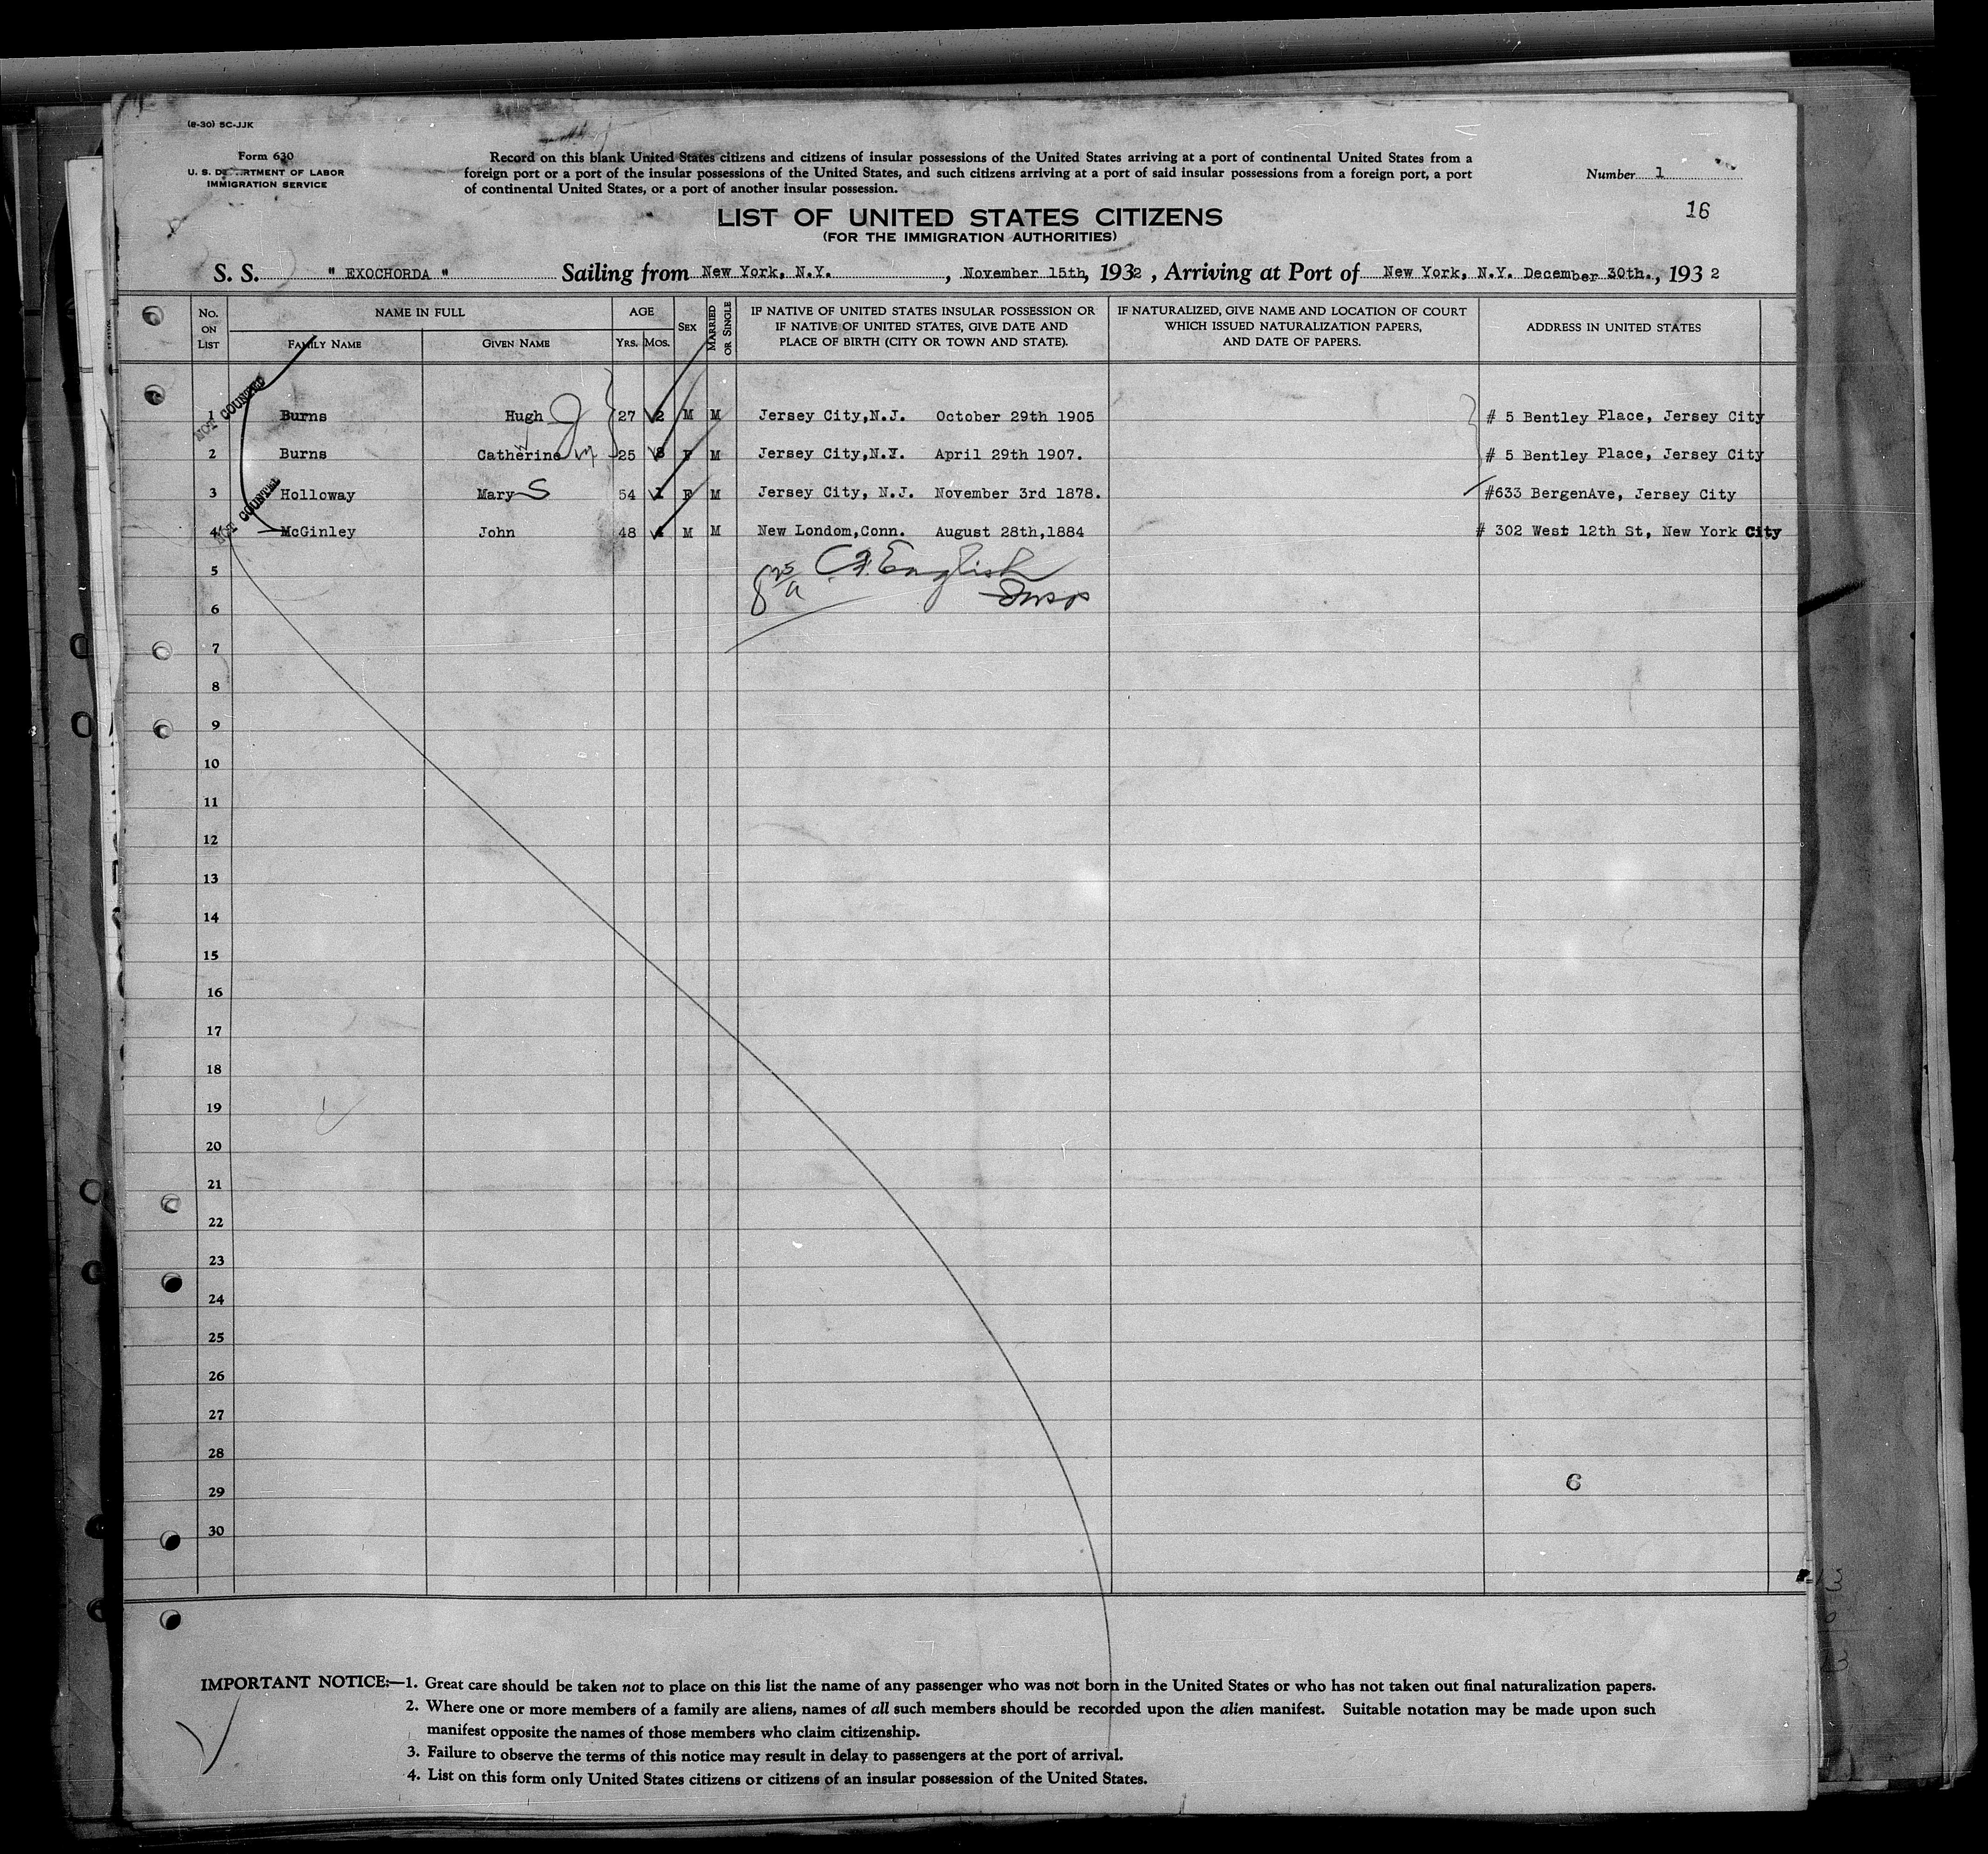 (8-30) 5C-JJK
Form 630
U. S. DEPARTMENT OF LABOR
IMMIGRATION SERVICE
Record on this blank United States citizens and citizens of insular possessions of the United States arriving at a port of continental United States from a
foreign port or a port of the insular possessions of the United States, and such citizens arriving at a port of said insular possessions from a foreign port, a port
of continental United States, or a port of another insular possession.
Number 1
16
LIST OF UNITED STATES CITIZENS
(FOR THE IMMIGRATION AUTHORITIES)
S. S. " EXOCHORDA " Sailing from New York, N.Y. , November 15th, 1932 , Arriving at Port of New York, N.Y. December 30th., 1932
No. ON LIST NAME IN FULL FAMILY NAME GIVEN NAME AGE YRS. MOS. SEX MARRIED OR SINGLE IF NATIVE OF UNITED STATES INSULAR POSSESSION OR IF NATIVE OF UNITED STATES, GIVE DATE AND PLACE OF BIRTH (CITY OR TOWN AND STATE). IF NATURALIZED, GIVE NAME AND LOCATION OF COURT WHICH ISSUED NATURALIZATION PAPERS, AND DATE OF PAPERS. ADDRESS IN UNITED STATES
NOT COUNTED
1 Burns Hugh J 27 2 M M Jersey City,N.J. October 29th 1905 # 5 Bentley Place, Jersey City
2 Burns Catherine M 25 8 F M Jersey City,N.Y. April 29th 1907. # 5 Bentley Place, Jersey City
3 Holloway Mary S 54 1 F M Jersey City, N.J. November 3rd 1878. #633 BergenAve, Jersey City
NOT COUNTED
4 McGinley John 48 4 M M New Londom,Conn. August 28th,1884 # 302 West 12th St, New York City
5 8 25/a C. F. English
6 Insp
7
8
9
10
11
12
13
14
15
16
17
18
19
20
21
22
23
24
25
26
27
28
29 6
30
IMPORTANT NOTICE:—1. Great care should be taken not to place on this list the name of any passenger who was not born in the United States or who has not taken out final naturalization papers.
2. Where one or more members of a family are aliens, names of all such members should be recorded upon the alien manifest. Suitable notation may be made upon such
manifest opposite the names of those members who claim citizenship.
3. Failure to observe the terms of this notice may result in delay to passengers at the port of arrival.
4. List on this form only United States citizens or citizens of an insular possession of the United States.